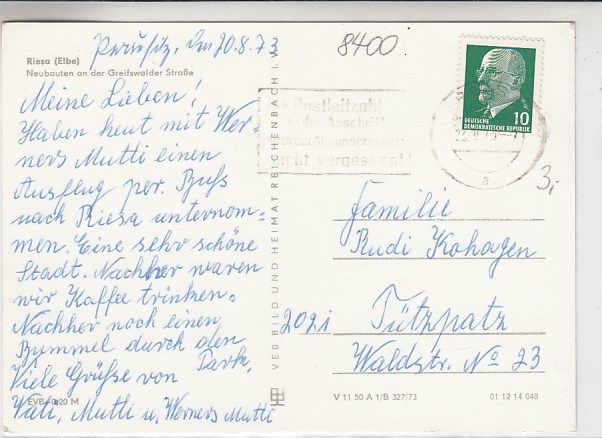 Prausitz, den 20.8.73
8400
Riesa (Elbe)
Neubauten an der Greifswalder Straße
Meine Lieben!
Haben heut mit Wer=
ners Mutti einen
Ausflug per. Buss
nach Riesa unternom=
men. Eine sehr schöne
Stadt. Nachher waren
wir Kaffee trinken.
Nachher noch einen
Bummel durch den
Park.
Viele Grüße von
Vati, Mutti u. Werners Mutti
EVB 0,20 M
VEB BILD UND HEIMAT REICHENBACH I. V.
Postleitzahl
in der Anschrift
nicht vergessen!
10
DEUTSCHE
DEMOKRATISCHE REPUBLIK
a
3,-
Familie
Rudi Kohagen
2021 Tützpatz
Waldstr. No 23
V 11 50 A 1/B 327/73
01 12 14 048